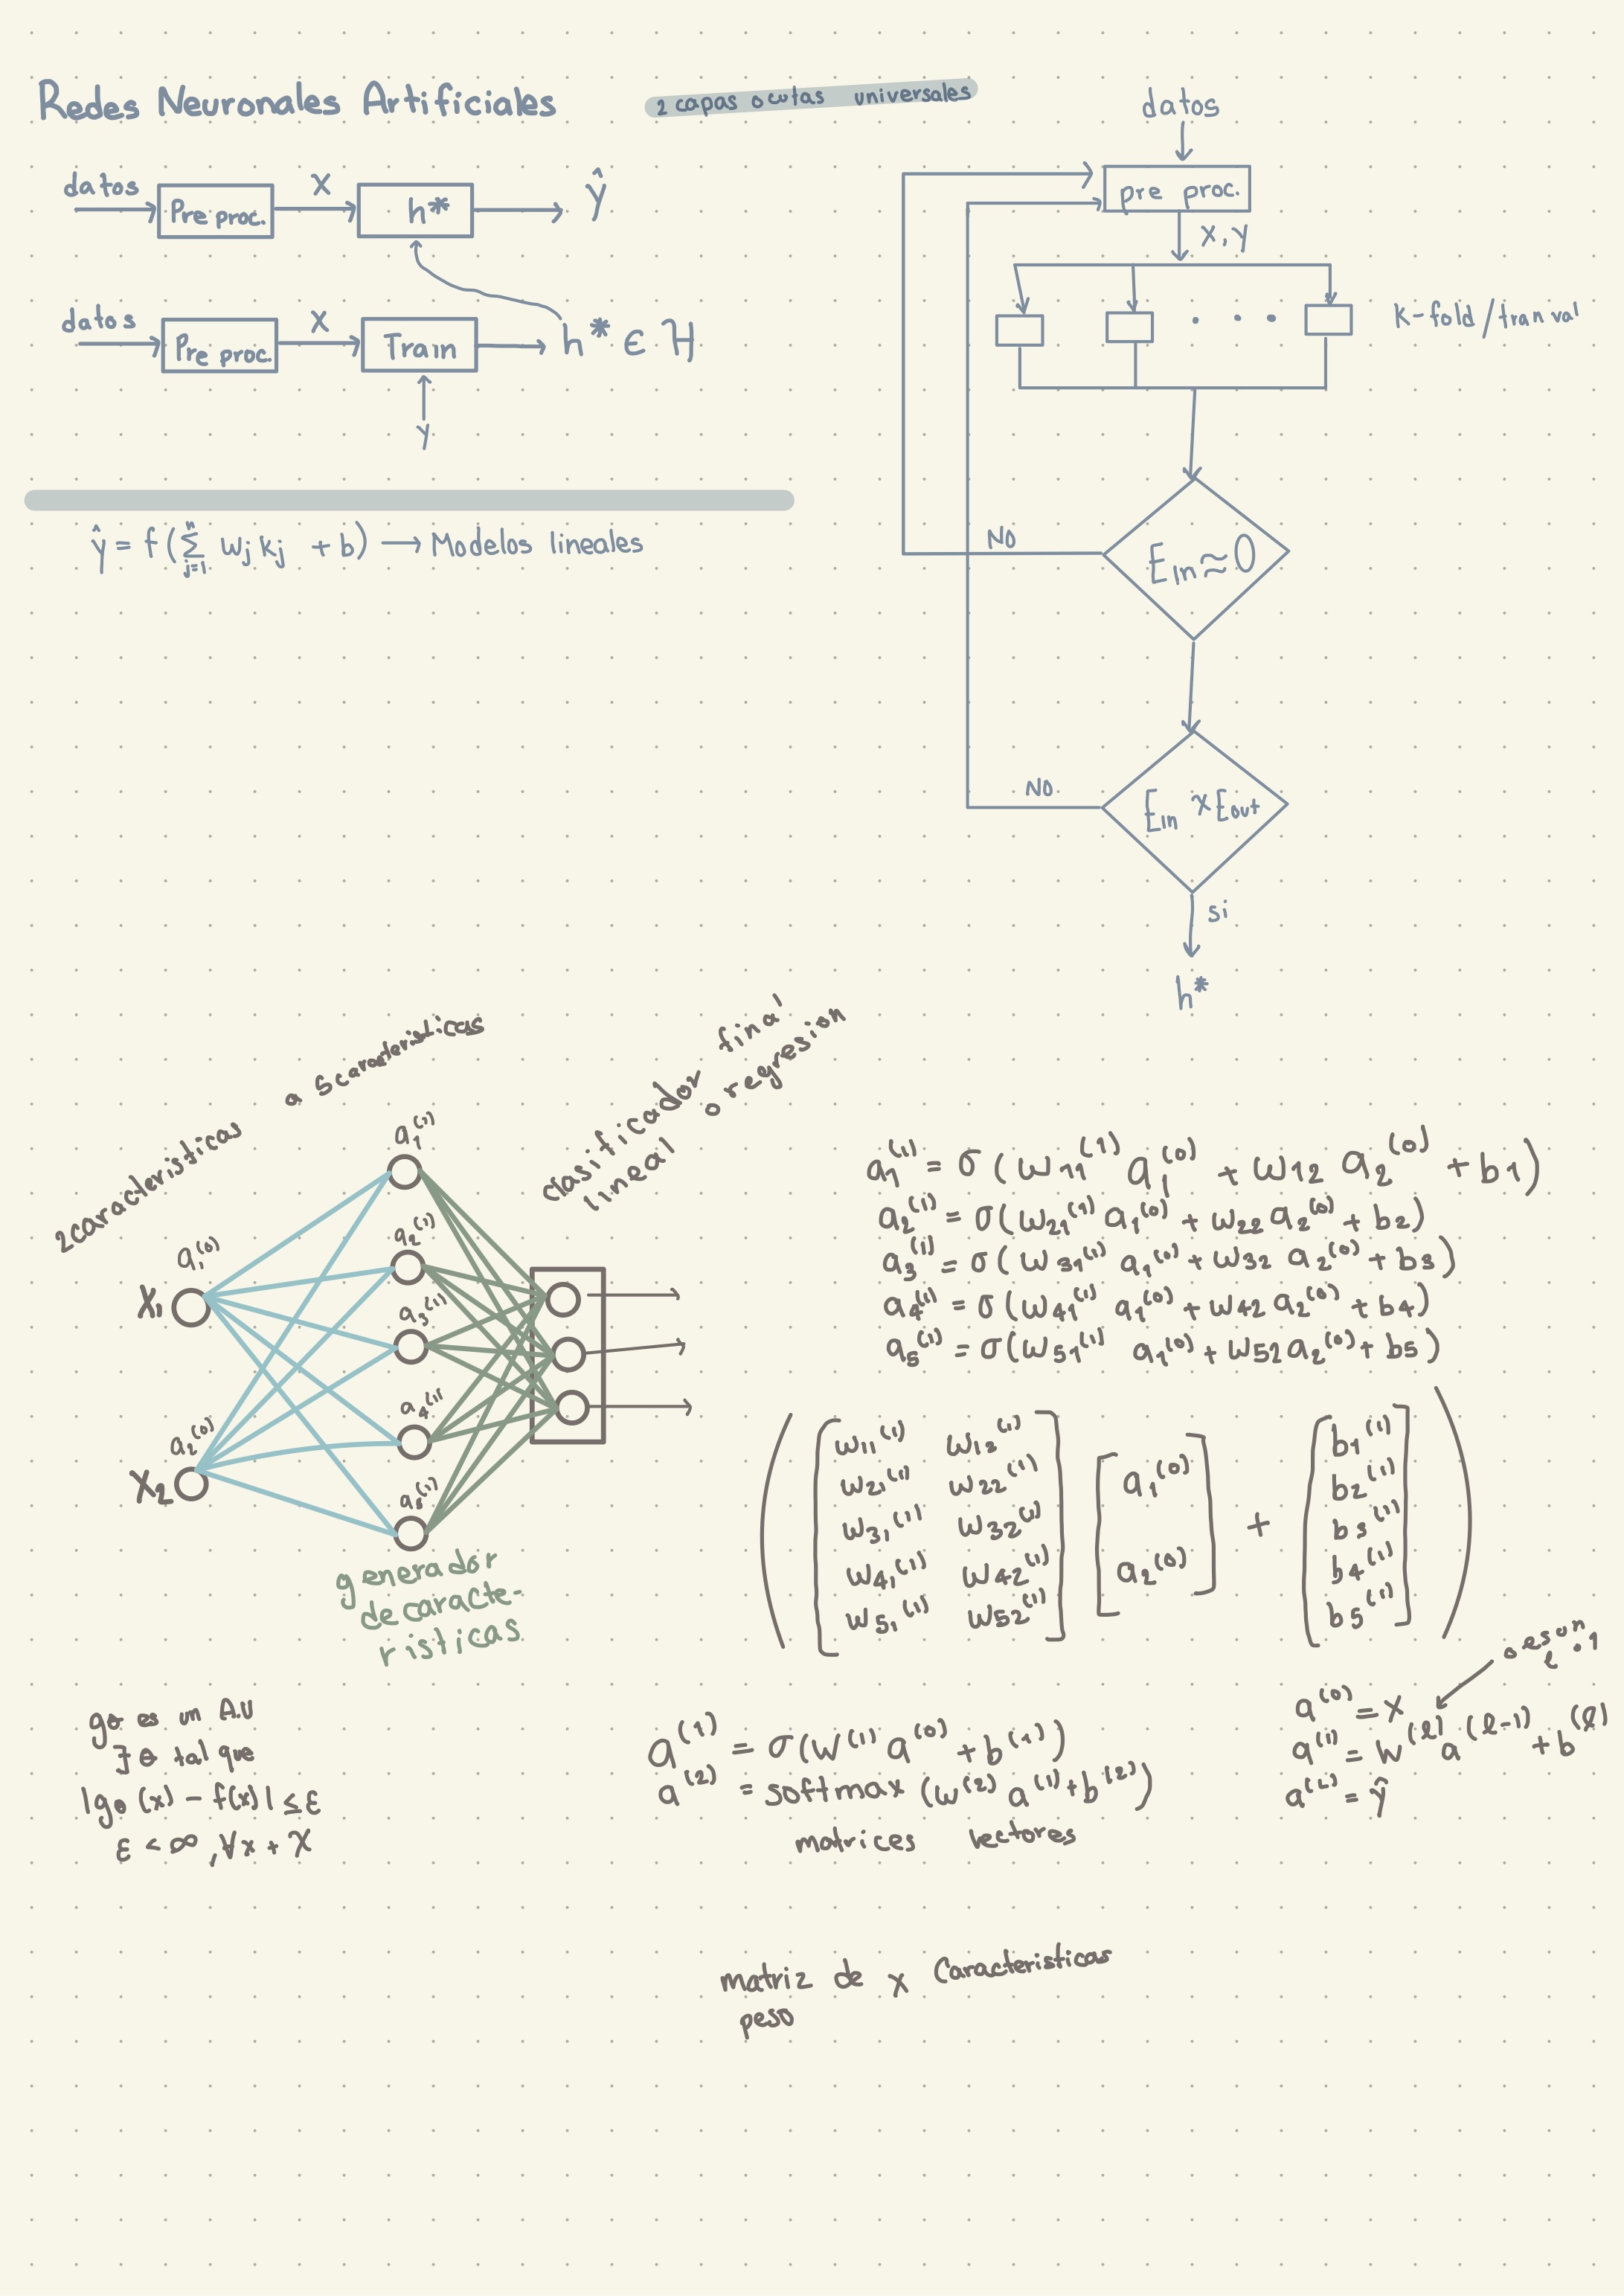 Redes Neuronales Artificiales
2 capas ocultas universales
datos
Pre proc.
X
h*
ŷ
datos
Pre proc.
X
Train
h* ∈ H
y
ŷ = f(∑ⁿⱼ₌₁ wⱼ kⱼ + b) → Modelos lineales
datos
pre proc.
X, y
K-fold/tran val
NO
E in ≈ 0
NO
E in ≈ E out
si
h*
2caracteristicas
a 5caracteristicas
clasificador final
lineal o regresion
a₁⁽⁰⁾
X₁
a₂⁽⁰⁾
X₂
a₁⁽¹⁾
a₂⁽¹⁾
a₃⁽¹⁾
a₄⁽¹⁾
a₅⁽¹⁾
generador
de caracte-
risticas
a₁⁽¹⁾ = σ(w₁₁⁽¹⁾ a₁⁽⁰⁾ + w₁₂ a₂⁽⁰⁾ + b₁)
a₂⁽¹⁾ = σ(w₂₁⁽¹⁾ a₁⁽⁰⁾ + w₂₂ a₂⁽⁰⁾ + b₂)
a₃⁽¹⁾ = σ(w₃₁⁽¹⁾ a₁⁽⁰⁾ + w₃₂ a₂⁽⁰⁾ + b₃)
a₄⁽¹⁾ = σ(w₄₁⁽¹⁾ a₁⁽⁰⁾ + w₄₂ a₂⁽⁰⁾ + b₄)
a₅⁽¹⁾ = σ(w₅₁⁽¹⁾ a₁⁽⁰⁾ + w₅₂ a₂⁽⁰⁾ + b₅)
w₁₁⁽¹⁾ w₁₂⁽¹⁾ b₁⁽¹⁾
w₂₁⁽¹⁾ w₂₂⁽¹⁾ a₁⁽⁰⁾ b₂⁽¹⁾
w₃₁⁽¹⁾ w₃₂⁽¹⁾ + b₃⁽¹⁾
w₄₁⁽¹⁾ w₄₂⁽¹⁾ a₂⁽⁰⁾ b₄⁽¹⁾
w₅₁⁽¹⁾ w₅₂⁽¹⁾ b₅⁽¹⁾
gθ es un A.U
∃ θ tal que
|gθ (x) − f(x)| ≤ ε
ε < ∞, ∀x + X
a⁽¹⁾ = σ(W⁽¹⁾ a⁽⁰⁾ + b⁽¹⁾)
a⁽²⁾ = softmax (w⁽²⁾ a⁽¹⁾ + b⁽²⁾)
matrices vectores
a⁽⁰⁾ = X
a⁽¹⁾ = W⁽ˡ⁾ a⁽ˡ⁻¹⁾ + b⁽ˡ⁾
a⁽ᴸ⁾ = ŷ
matriz de x Caracteristicas
peso